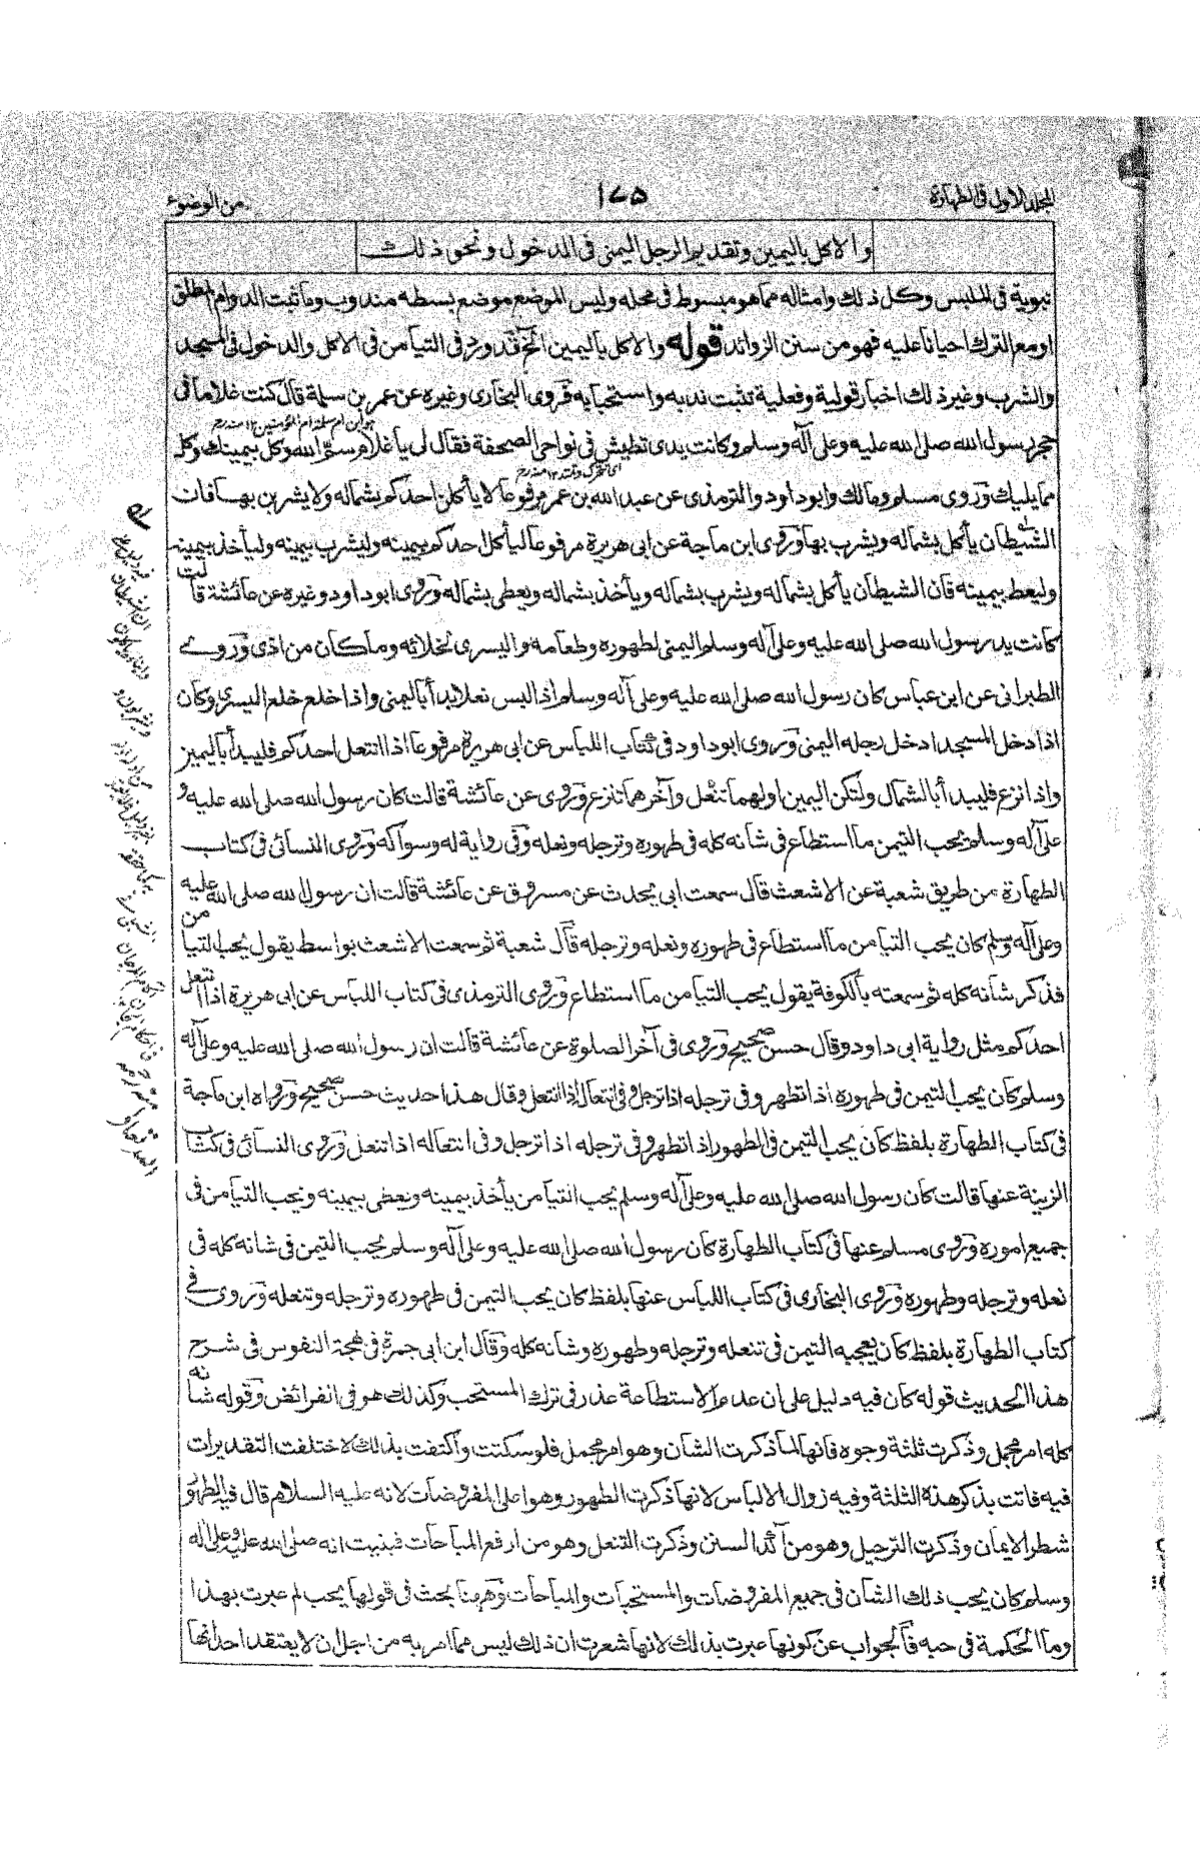 المجلد الاول فى الطهارة
١٧٥
من الوضوء
والاكل باليمين وتقديم الرجل اليمنى فى الدخول ونحو ذلك
نبوية فى الملبس وكل ذلك وامثاله مما هو مبسوط فى محله وليس الموضع موضع بسطه مندوب وما ثبت الدوام المطلق
او مع الترك احيانا عليه فهو من سنن الزوائد قوله والاكل باليمين الخ قد ورد فى التيامن فى الاكل والدخول فى المسجد
والشرب وغير ذلك اخبار قولية وفعلية تثبت ندبه واستحبابه فروى البخارى وغيره عن عمر بن سلمة قال كنت غلاما فى
هو ابن ام سلمة ام المؤمنين ١٢ منه رح
حجر رسول الله صلى الله عليه وعلى آله وسلم وكانت يدى تطيش فى نواحى الصحفة فقال لى يا غلام سمّ الله وكل بيمينك وكل
اى تتحرك وتمتد ١٢ منه رح
مما يليك وروى مسلم ومالك وابو داود والترمذى عن عبد الله بن عمر مرفوعا لا يأكلن احدكم بشماله ولا يشربن بها فان
الشيطان يأكل بشماله ويشرب بها وروى ابن ماجة عن ابى هريرة مرفوعا ليأكل احدكم بيمينه وليشرب بيمينه وليأخذ بيمينه
وليعط بيمينه فان الشيطان يأكل بشماله ويشرب بشماله ويأخذ بشماله ويعطى بشماله وروى ابو داود وغيره عن عائشة قالت
كانت يد رسول الله صلى الله عليه وعلى آله وسلم اليمنى لطهوره وطعامه واليسرى لخلائه وما كان من اذى وروى
الطبرانى عن ابن عباس كان رسول الله صلى الله عليه وعلى آله وسلم اذا لبس نعلا بدأ باليمنى واذا خلع خلع اليسرى وكان
اذا دخل المسجد ادخل رجله اليمنى وروى ابو داود فى كتاب اللباس عن ابى هريرة مرفوعا اذا انتعل احدكم فليبدأ باليمين
واذا نزع فليبدأ بالشمال ولتكن اليمين اولهما تنعل وآخرهما تنزع وروى عن عائشة قالت كان رسول الله صلى الله عليه و
على آله وسلم يحب التيمن ما استطاع فى شانه كله فى طهوره وترجله ونعله وفى رواية له وسواكه وروى النسائى فى كتاب
الطهارة من طريق شعبة عن الاشعث قال سمعت ابى يحدث عن مسروق عن عائشة قالت ان رسول الله صلى الله عليه
وعلى آله وسلم كان يحب التيامن ما استطاع فى طهوره ونعله وترجله قال شعبة ثم سمعت الاشعث بواسط يقول يحب التيامن
فذكر شانه كله ثم سمعته بالكوفة يقول يحب التيامن ما استطاع وروى الترمذى فى كتاب اللباس عن ابى هريرة اذا انتعل
احدكم مثل رواية ابى داود وقال حسن صحيح وروى فى آخر الصلوة عن عائشة قالت ان رسول الله صلى الله عليه وعلى آله
وسلم كان يحب التيمن فى طهوره اذا تطهر وفى ترجله اذا ترجل وفى انتعاله اذا انتعل وقال هذا حديث حسن صحيح ورواه ابن ماجة
فى كتاب الطهارة بلفظ كان يحب التيمن فى الطهور اذا تطهر وفى ترجله اذا ترجل وفى انتعاله اذا انتعل وروى النسائى فى كتاب
الزينة عنها قالت كان رسول الله صلى الله عليه وعلى آله وسلم يحب التيامن يأخذ بيمينه ويعطى بيمينه ويحب التيامن فى
جميع اموره وروى مسلم عنها فى كتاب الطهارة كان رسول الله صلى الله عليه وعلى آله وسلم يحب التيمن فى شانه كله فى
نعله وترجله وطهوره وروى البخارى فى كتاب اللباس عنها بلفظ كان يحب التيمن فى طهوره وترجله وتنعله وروى فى
كتاب الطهارة بلفظ كان يعجبه التيمن فى تنعله وترجله وطهوره وشانه كله وقال ابن ابى جمرة فى بهجة النفوس فى شرح
هذا الحديث قوله كان فيه دليل على ان عدم الاستطاعة عذر فى ترك المستحب وكذلك هو فى الفرائض وقوله شانه
كله امر مجمل وذكرت ثلثة وجوه فانها لما ذكرت الشان وهو امر مجمل فلو سكتت واكتفت بذلك لاختلفت التقديرات
فيه فاتت بذكر هذه الثلثة وفيه زوال الالباس لانها ذكرت الطهور وهو اعلى المفروضات لانه عليه السلام قال فيه الطهور
شطر الايمان وذكرت الترجيل وهو من آكد السنن وذكرت التنعل وهو من ارفع المباحات فبنيت انه صلى الله عليه وعلى آله
وسلم كان يحب ذلك الشان فى جميع المفروضات والمستحبات والمباحات وههنا بحث فى قولها يحب لم عبرت بهذا
وما الحكمة فى حبه فالجواب عن كونها عبرت بذلك لانها شعرت ان ذلك ليس مما امر به من اجل ان لا يعتقد احد انها